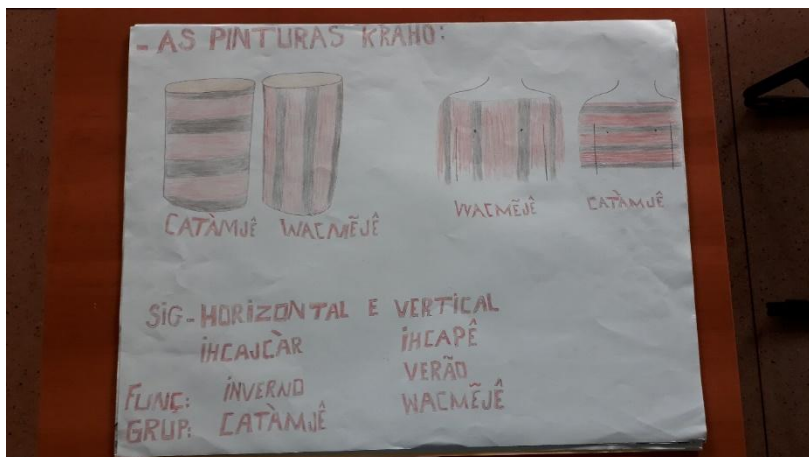 - AS PINTURAS KRAHO:
CATÀMJÊ WACMẼJÊ
WACMẼJÊ CATÀMJÊ
SIG-HORIZONTAL E VERTICAL
IHCAJCÀR IHCAPÊ
VERÃO
FUNÇ: INVERNO
GRUP: CATÀMJÊ WACMẼJÊ